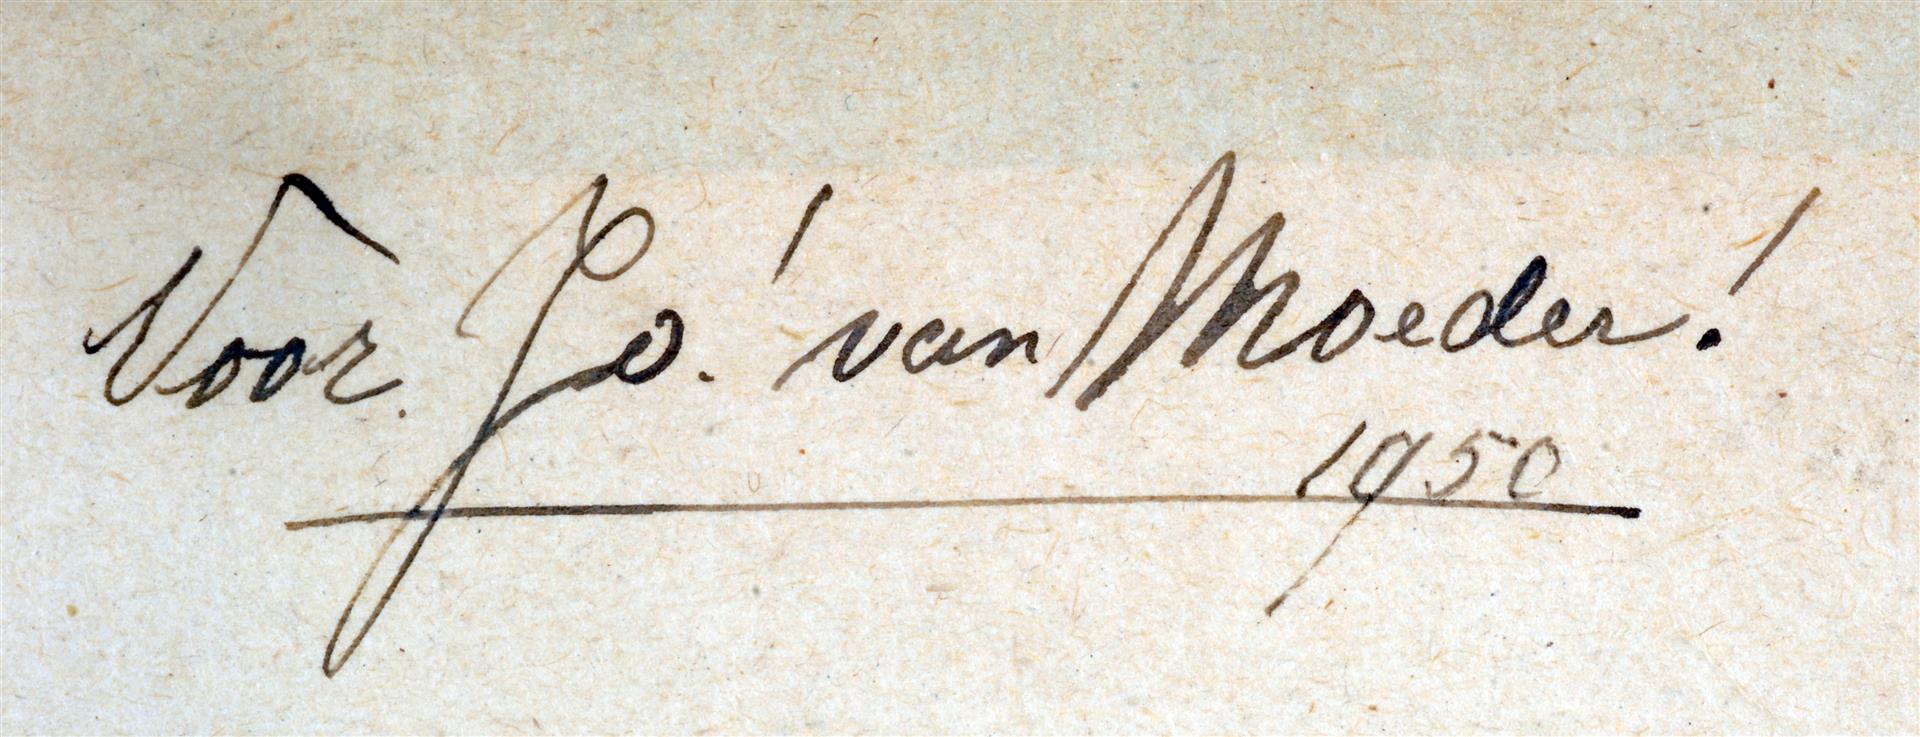 Voor. Jo! van Moeder!
1950